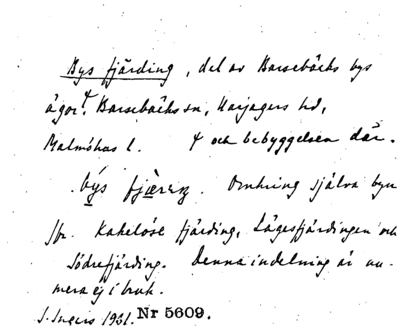 Bys fjärding, del av Barsebäcks bys
ägor.† Barsebäcks sn, Harjagers hd,
Malmöhus l. † och bebyggelsen där.
býs fjæreŋ. Omkring själva byn
jfr. Kakelöse fjärding, Lägesfjärdingen och
Södrefjärding. Denna indelning är nu-
mera ej i bruk.
I. Ingers 1931. Nr 5609.